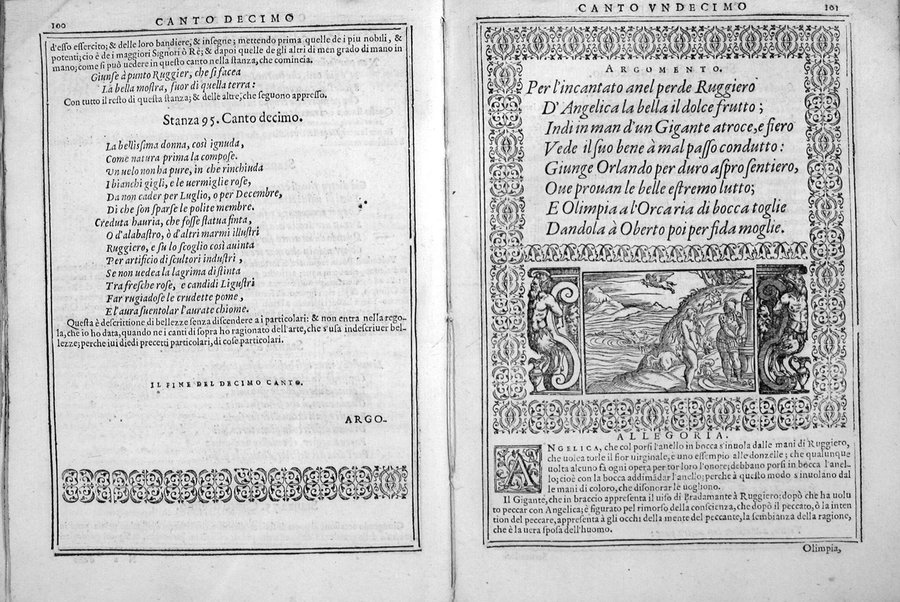 100
CANTO DECIMO
d'esso essercito; & delle loro bandiere, & insegne; mettendo prima quelle de i piu nobili, &
potenti; cio è de i maggiori Signori ò Rè; & dapoi quelle de gli altri di men grado di mano in
mano; come si può uedere in questo canto nella stanza, che comincia.
Giunse à punto Ruggier, che si facea
La bella mostra, fuor di quella terra:
Con tutto il resto di questa stanza; & delle altre, che seguono appresso.
Stanza 95. Canto decimo.
La bellissima donna, così ignuda,
Come natura prima la compose.
Vn uelo non ha pure, in che rinchiuda
I bianchi gigli, e le uermiglie rose,
Da non cader per Luglio, o per Decembre,
Di che son sparse le polite membre.
Creduta hauria, che fosse statua finta,
O d'alabastro, ò d'altri marmi illustri
Ruggiero, e su lo scoglio così auinta
Per artificio di scultori industri,
Se non uedea la lagrima distinta
Tra fresche rose, e candidi Ligustri
Far rugiadose le crudette pome,
E l'aura suentolar l'aurate chiome.
Questa è descrittione di bellezze senza discendere a i particolari: & non entra nella rego-
la, che io ho data, quando ne i canti di sopra ho ragionato dell'arte, che s'usa indescriuer bel-
lezze; perche iui diedi precetti particolari, di cose particolari.
IL FINE DEL DECIMO CANTO.
ARGO-
CANTO VNDECIMO
101
ARGOMENTO.
Per l'incantato anel perde Ruggiero
D'Angelica la bella il dolce frutto;
Indi in man d'un Gigante atroce, e fiero
Vede il suo bene à mal passo condutto:
Giunge Orlando per duro aspro sentiero,
Oue prouan le belle estremo lutto;
E Olimpia a l'Orca ria di bocca toglie
Dandola à Oberto poi per fida moglie.
ALLEGORIA.
ANGELICA, che col porsi l'anello in bocca s'inuola dalle mani di Ruggiero,
che uolea torle il fior uirginale, e uno essempio alle donzelle; che qualunque
uolta alcuno fa ogni opera per tor loro l'honore; debbano porsi in bocca l'anel-
lo; cioè con la bocca addimãdar l'anello; perche à questo modo s'inuolano dal
le mani di coloro, che disonorar le uogliono.
Il Gigante, che in braccio appresenta il uiso di Bradamante à Ruggiero: dopò che ha uolu
to peccar con Angelica; è figurato pel rimorso della conscienza, che dopò il peccato, ò la inten
tion del peccare, appresenta à gli occhi della mente del peccante, la sembianza della ragione,
che è la uera sposa dell'huomo.
Olimpia,